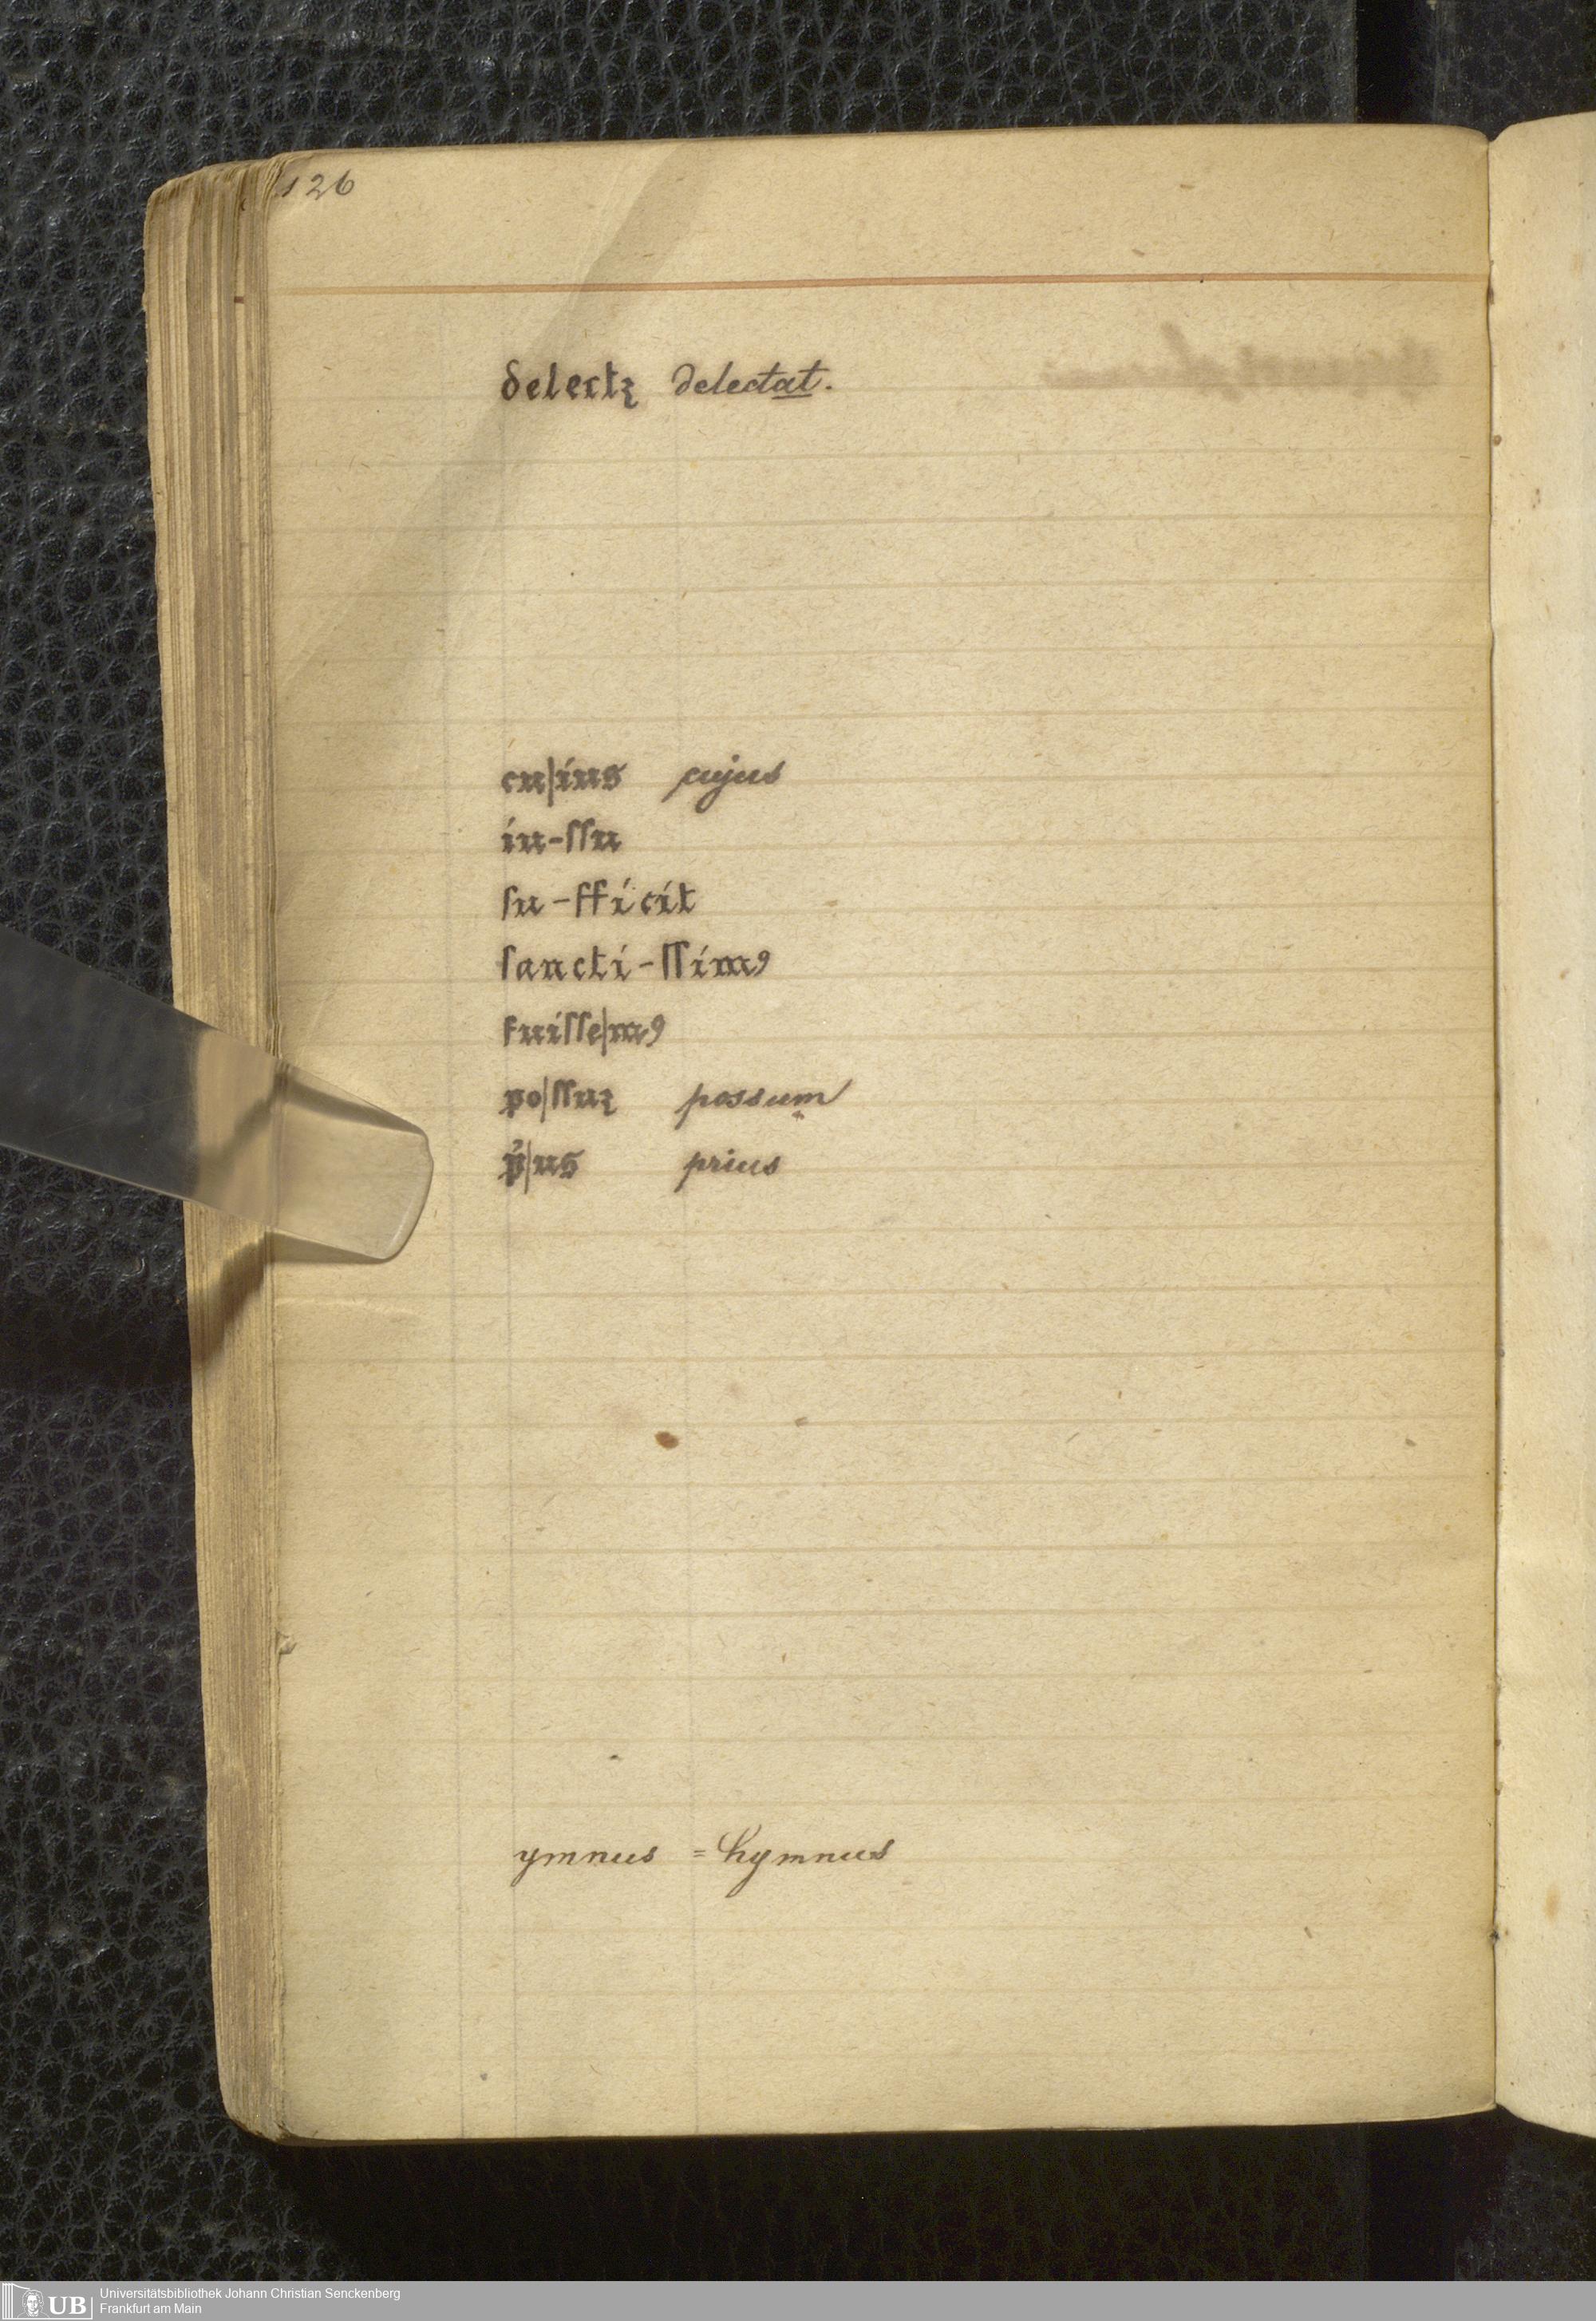 126
delectꝫ delectat.
cu|ius cujus
iu-ſſu
ſu-fficit
ſancti-ſſimꝰ
fuiſſe|mꝰ
po|ſſuꝫ possum
pͥ|us prius
ymnus = hymnus
UB Universitätsbibliothek Johann Christian Senckenberg
Frankfurt am Main